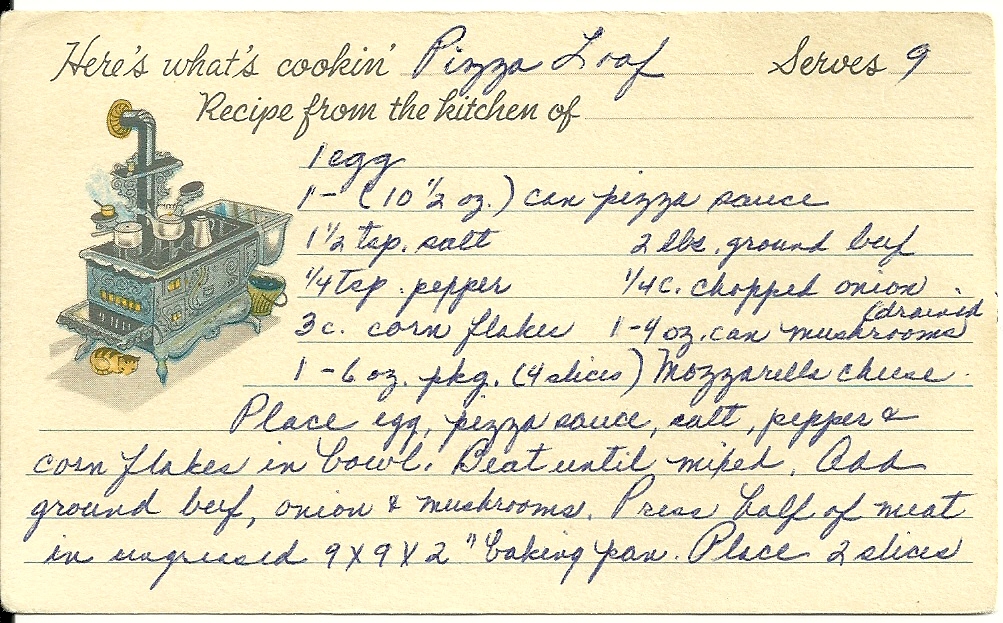 Here's what's cookin' Pizza Loaf Serves 9
Recipe from the kitchen of
1 egg
1 - (10 1/2 oz.) can pizza sauce
1 1/2 tsp. salt 2 lbs. ground beef
1/4 tsp. pepper 1/4 c. chopped onion
3 c. corn flakes 1-4 oz. can mushrooms (drained
1 - 6 oz. pkg. (4 slices) Mozzarella cheese.
Place egg, pizza sauce, salt, pepper &
corn flakes in bowl. Beat until mixed. Add
ground beef, onion & mushrooms. Press half of meat
in ungreased 9X9X2" baking pan. Place 2 slices